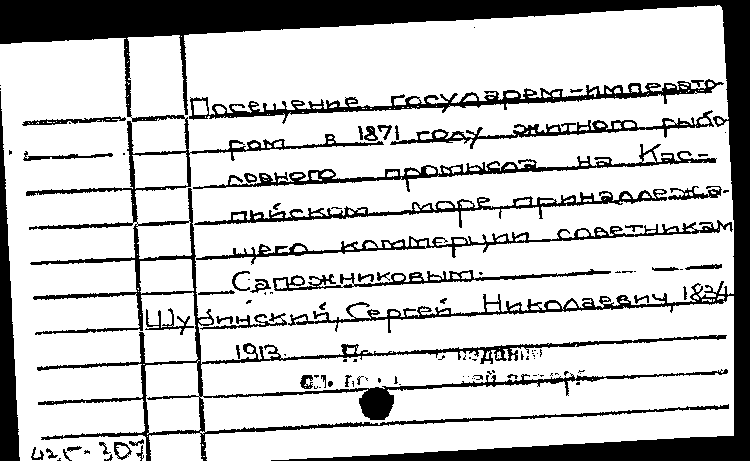 Посещение государем-императо-
ром в 1871 году житного рыбо-
ловного промысла на Кас-
пийском море, принадлежа-
щего коммерции советникам
Сапожниковым.
Шубинский, Сергей Николаевич, 1834
1913. издания
см.
42,5-307